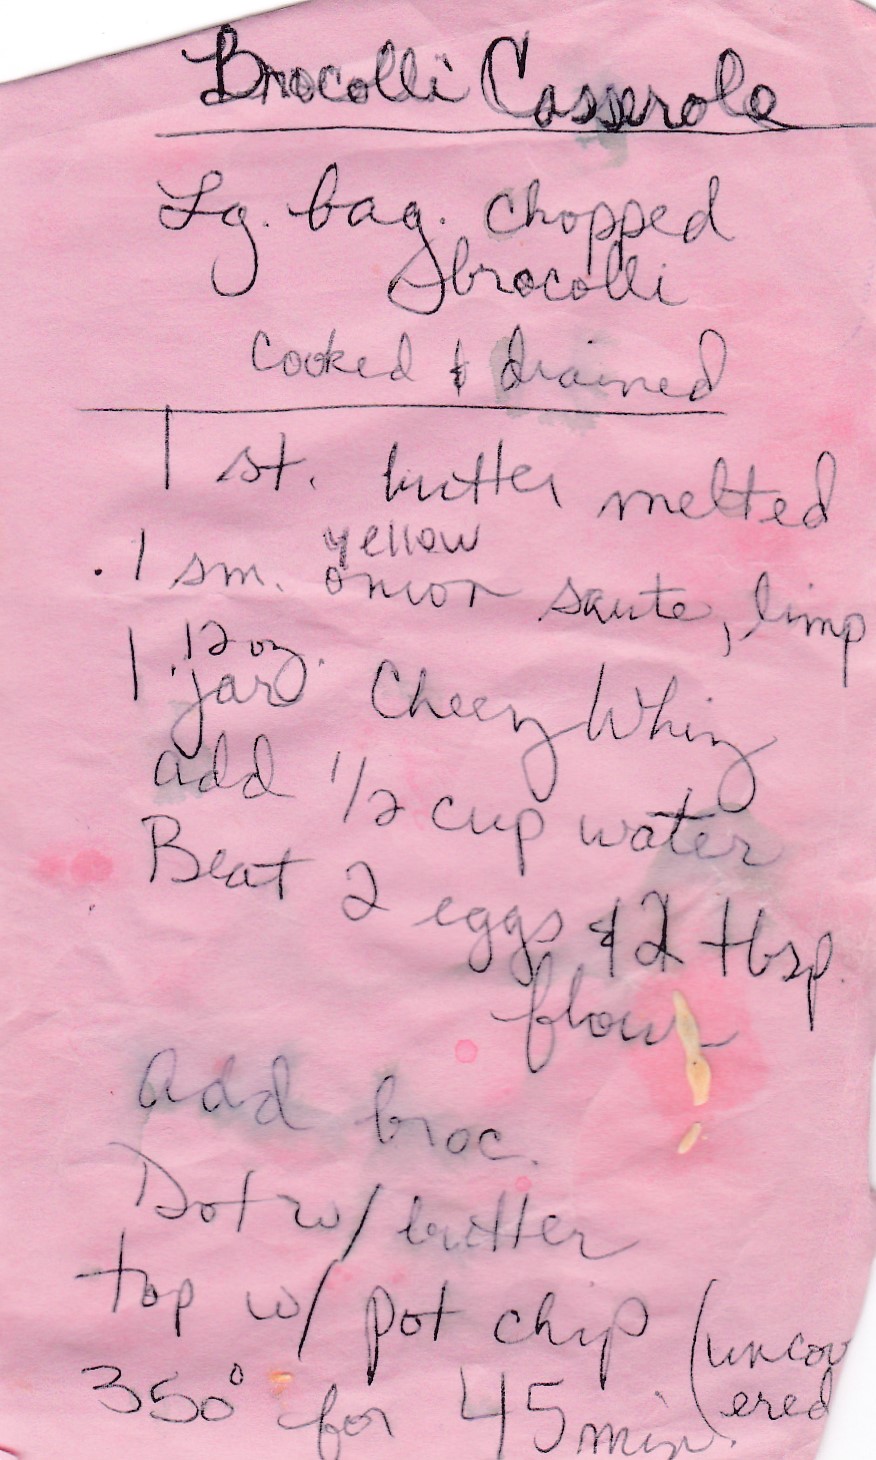 Brocolli Casserole
Lg. bag. chopped
brocolli
cooked & drained
1 st. butter melted
yellow
. 1 sm. onion saute, limp
12 oz.
1 jar Cheez Whiz
add 1/2 cup water
Beat 2 eggs & 2 tbsp.
flour
add broc.
Dot w/ butter
top w/ pot chip (uncov
ered
350° for 45 min.